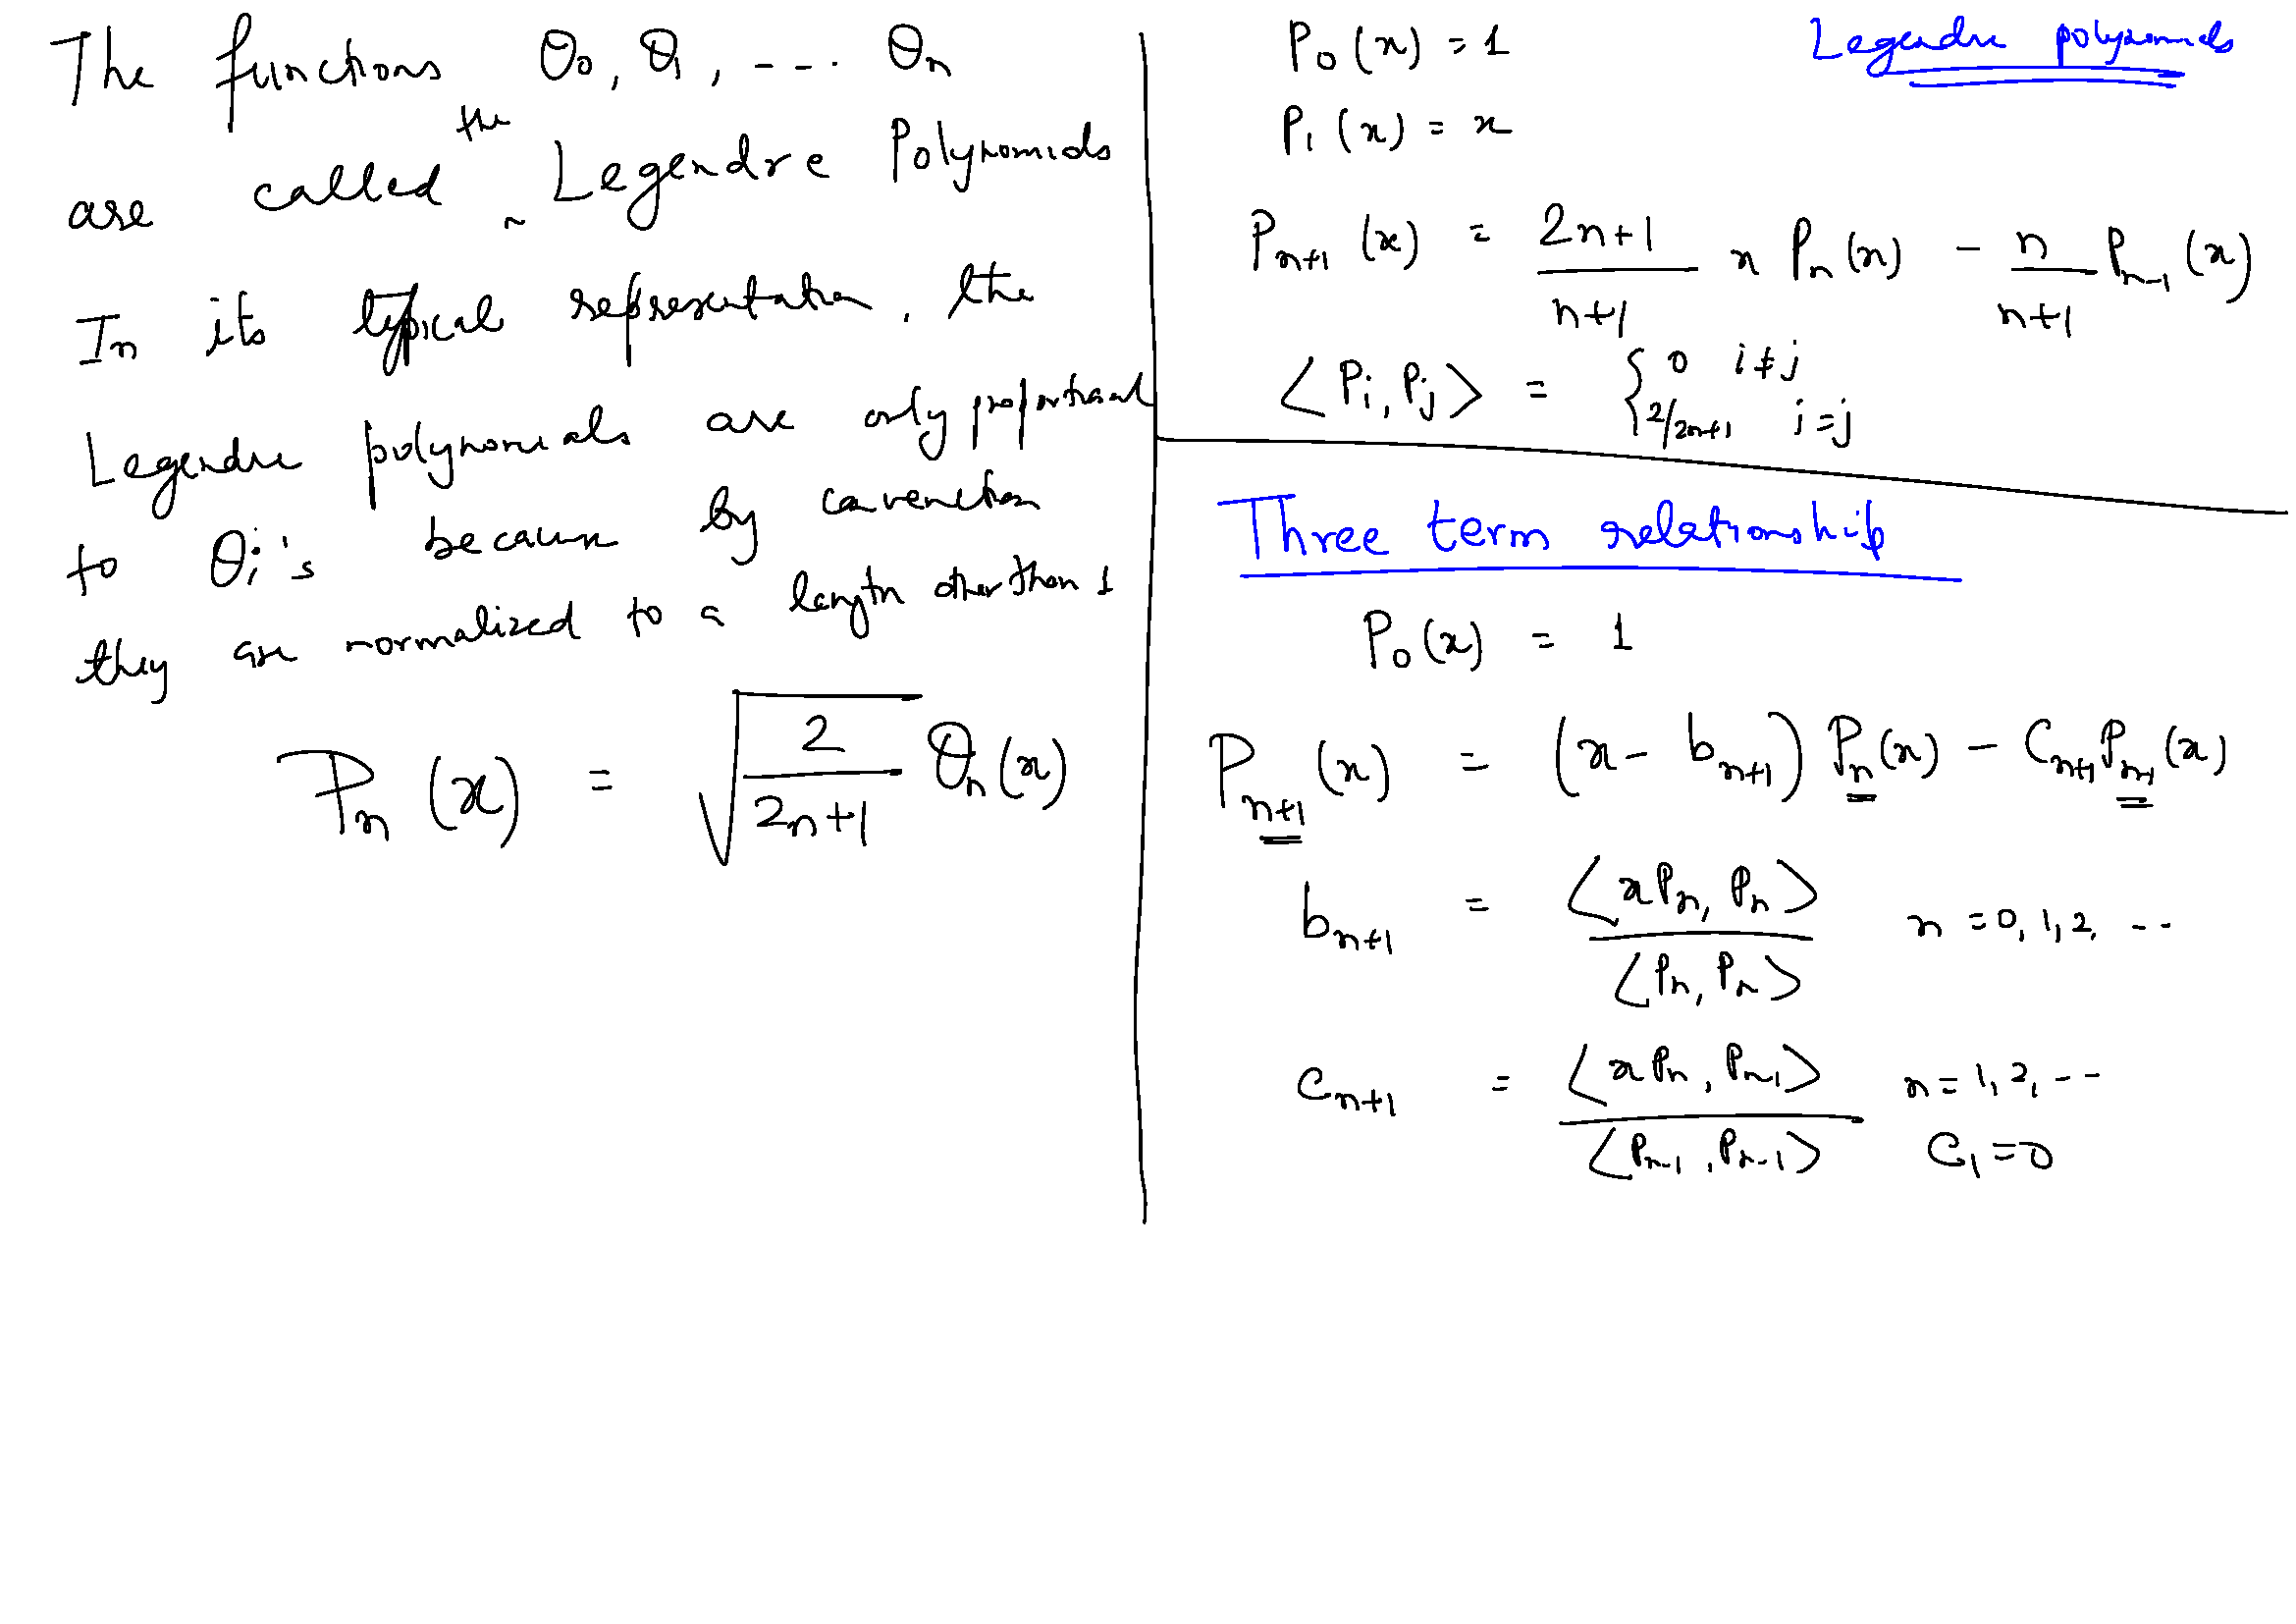 The functions Θ₀, Θ₁, --- . Θₙ
are called the Legendre Polynomials
In its typical representation, the
Legendre polynomials are only proportional
to Θᵢ's because by convenction
they are normalized to a length other than 1
Pₙ (x) = √(2/(2n+1)) Θₙ(x)
Legendre polynomials
P₀ (x) = 1
P₁ (x) = x
Pₙ₊₁ (x) = (2n+1)/(n+1) x Pₙ (x) - n/(n+1) Pₙ₋₁ (x)
<Pᵢ, Pⱼ> = { 0 i≠j
2/2n+1 i=j
Three term relationship
P₀(x) = 1
Pₙ₊₁ (x) = (x - bₙ₊₁) Pₙ(x) - Cₙ₊₁Pₙ₋₁(x)
bₙ₊₁ = <xPₙ, Pₙ> / <Pₙ, Pₙ> n = 0, 1, 2, --
Cₙ₊₁ = <xPₙ, Pₙ₋₁> / <Pₙ₋₁, Pₙ₋₁> n = 1, 2, --
C₁ = 0